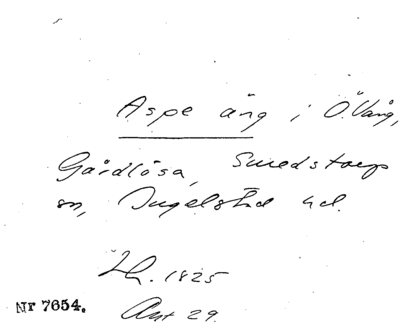 Aspe äng i Ö. Vång,
Gårdlösa, Smedstorps
sn, Ingelstad hd.
Lh. 1825
Akt 29.
Nr 7654.